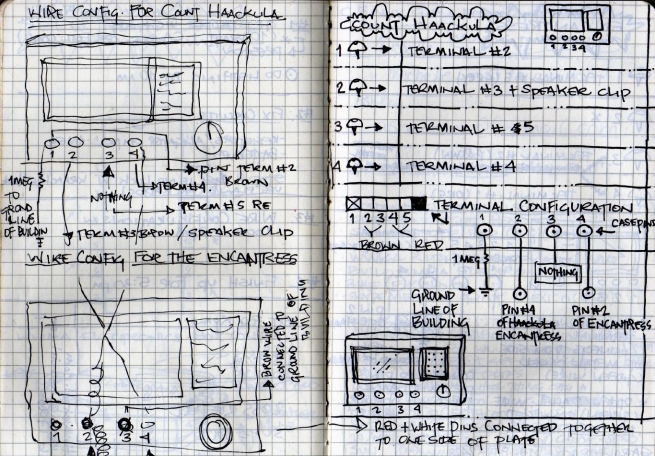 WIRE CONFIG. FOR COUNT HAACKULA
1 2 3 4
PIN TERM #2
BROWN
1MEG
TO
GROND
LINE
OF BUILDIN
NOTHING
TERM#4.
TERM#5 RE
TERM#3/BROWN/SPEAKER CLIP
WIRE CONFIG FOR THE ENCANTRESS
BROWN WIRE
CONNECTED TO
GROUND LINE OF
1 2 3 4
COUNT HAACKULA
1 2 3 4
1 → TERMINAL #2
2 → TERMINAL #3 + SPEAKER CLIP
3 → TERMINAL # 5
4 → TERMINAL #4
TERMINAL CONFIGURATION
1 2 3 4 5
BROWN RED
1 2 3 4
CASE PINS
1MEG
NOTHING
GROUND
LINE OF
BUILDING
PIN#4
OF HAACKULA
ENCANTRESS
PIN#2
OF ENCANTRESS
1 2 3 4
RED + WHITE PINS CONNECTED TOGETHER
TO ONE SIDE OF PLATE